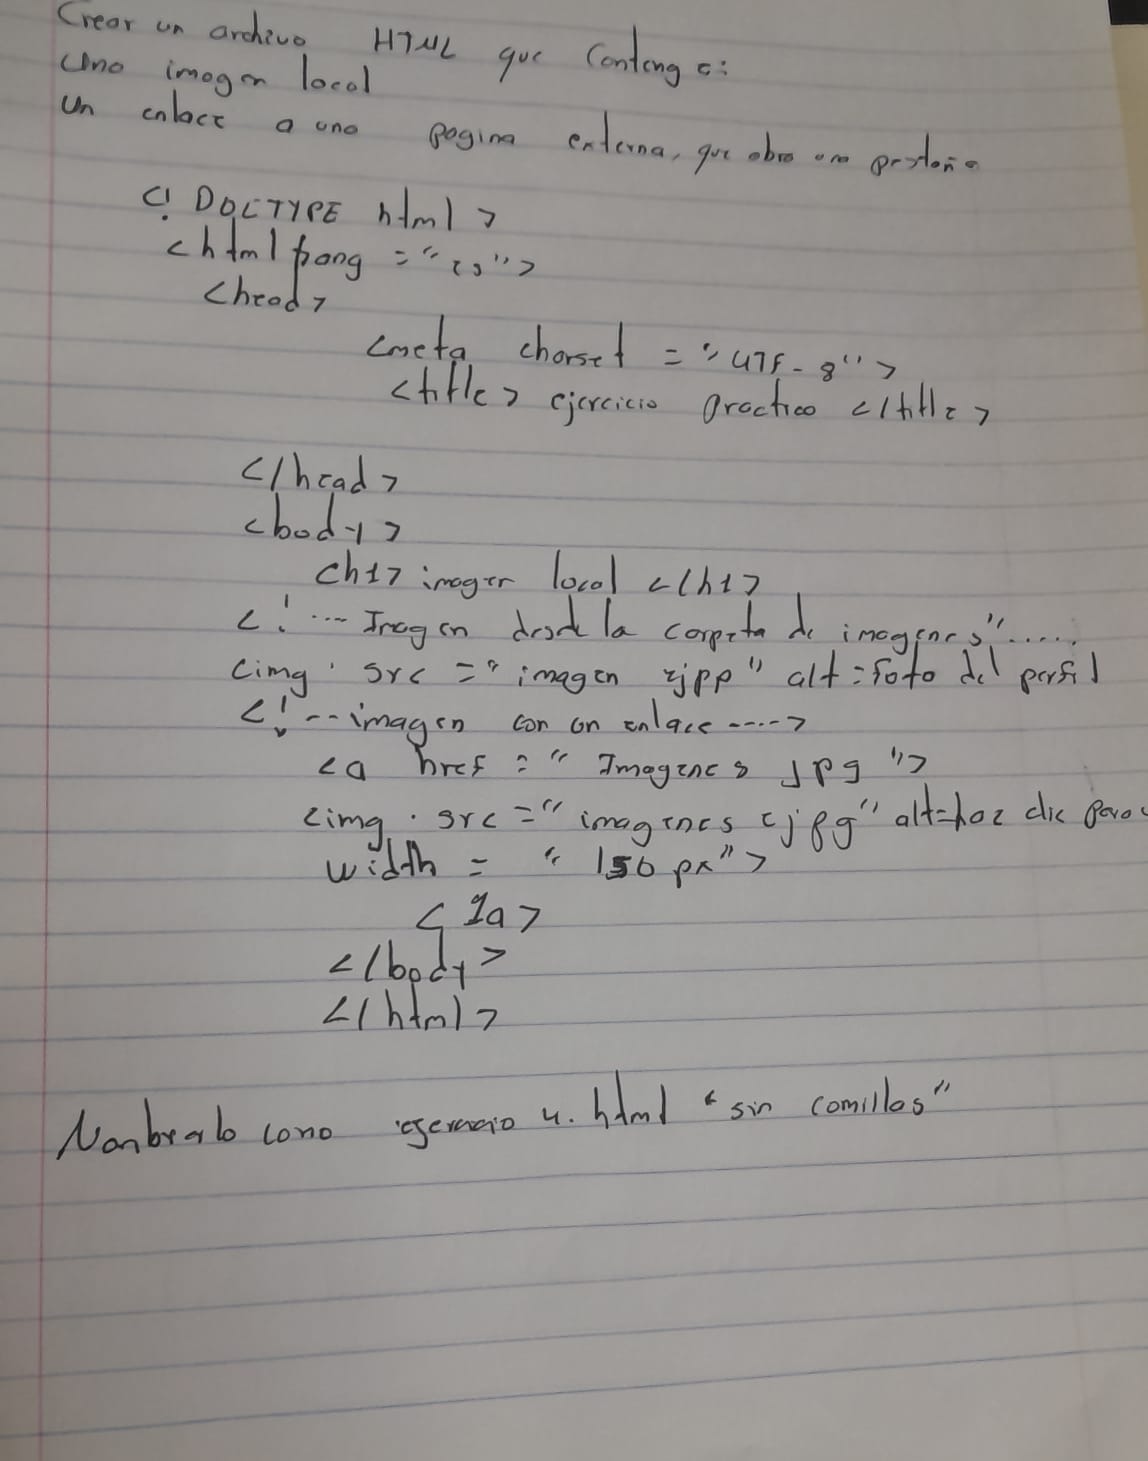 Crear un archivo HTML que Contenga:
Una imagen local
Un enlace a una pagina externa, que abra una pestaña
<! DOCTYPE html >
<html lang = "es">
<head>
<meta charset = "UTF-8">
<title> ejercicio practico </title>
</head>
<body>
<h1> imagen local </h1>
<! --- Imagen desde la carpeta de imagenes".....
<img src = "imagen ejpp" alt = foto del perfil
<!--imagen con un enlace ---->
<a href = " Imagenes jpg ">
<img . src = " imagenes ejpg" alt=haz clic para
width = " 150 px">
</a>
</body>
</html>
Nonbralo como ejercicio 4. html " sin comillas"